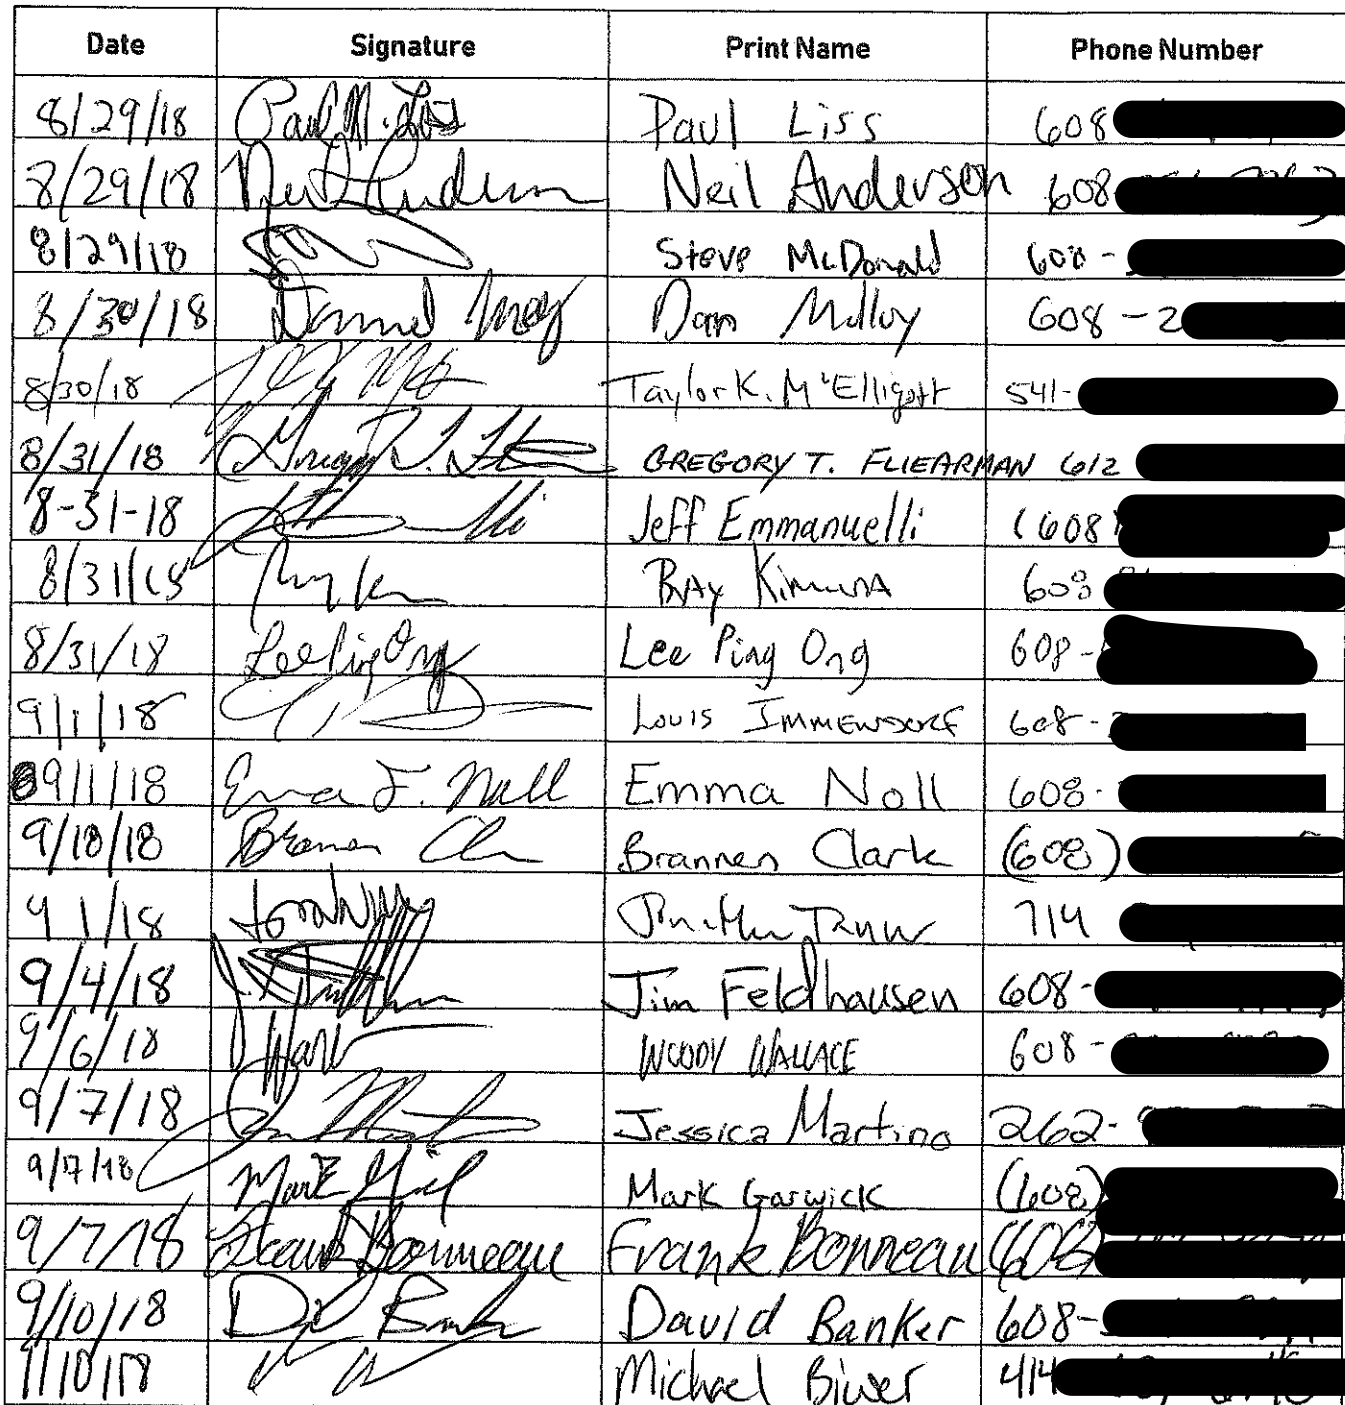 Date Signature Print Name Phone Number
8/29/18 Paul M. Liss Paul Liss 608
8/29/18 Neil Anderson 608
8/29/18 Steve McDonald 608-
8/30/18 Dan Molloy 608-2
8/30/18 Taylor K. McElligott 541-
8/31/18 GREGORY T. FLIEARMAN 612
8-31-18 Jeff Emmanuelli (608)
8/31/18 RAY KIMURA 608
8/31/18 Lee Ping Ong Lee Ping Ong 608-
9/1/18 LOUIS IMMENDORF 608-
9/1/18 Emma F. Noll Emma Noll 608-
9/18/18 Brannen Clark (608)
9 1/18 714
9/4/18 Jim Feldhausen 608-
9/6/18 WOODY WALLACE 608-
9/7/18 Jessica Martino 262-
9/7/18 Mark Garwick (608)
9/7/18 Frank Bonneau Frank Bonneau 608
9/10/18 David Banker 608-
Michael Biwer 414